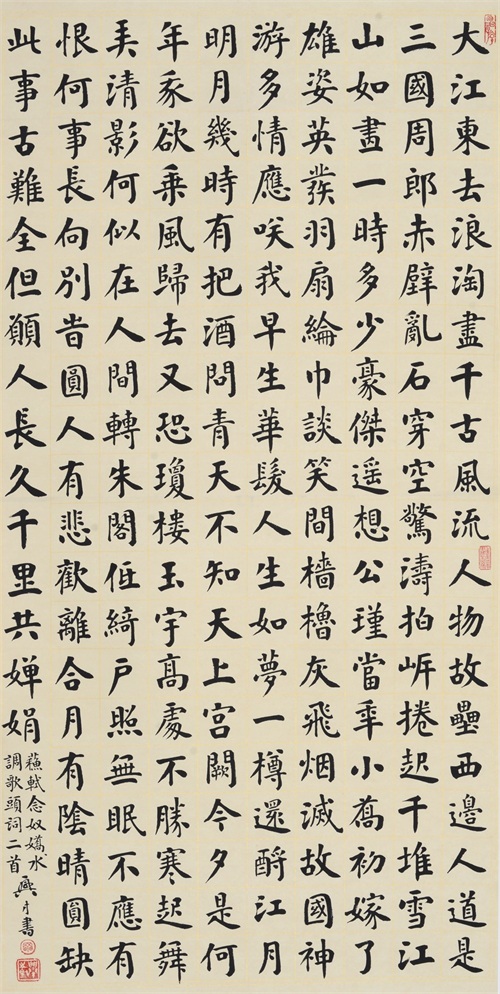 大江東去浪淘盡千古風流人物故壘西邊人道是
三國周郎赤壁亂石穿空驚濤拍岸捲起千堆雪江
山如畫一時多少豪傑遥想公瑾當年小喬初嫁了
雄姿英發羽扇綸巾談笑間檣櫓灰飛烟滅故國神
游多情應咲我早生華髮人生如夢一樽還酹江月
明月幾時有把酒問青天不知天上宮闕今夕是何
年我欲乘風歸去又恐瓊樓玉宇高處不勝寒起舞
弄清影何似在人間轉朱閣低綺戶照無眠不應有
恨何事長向別時圓人有悲歡離合月有陰晴圓缺
此事古難全但願人長久千里共嬋娟
蘇軾念奴嬌水
調歌頭詞二首 書